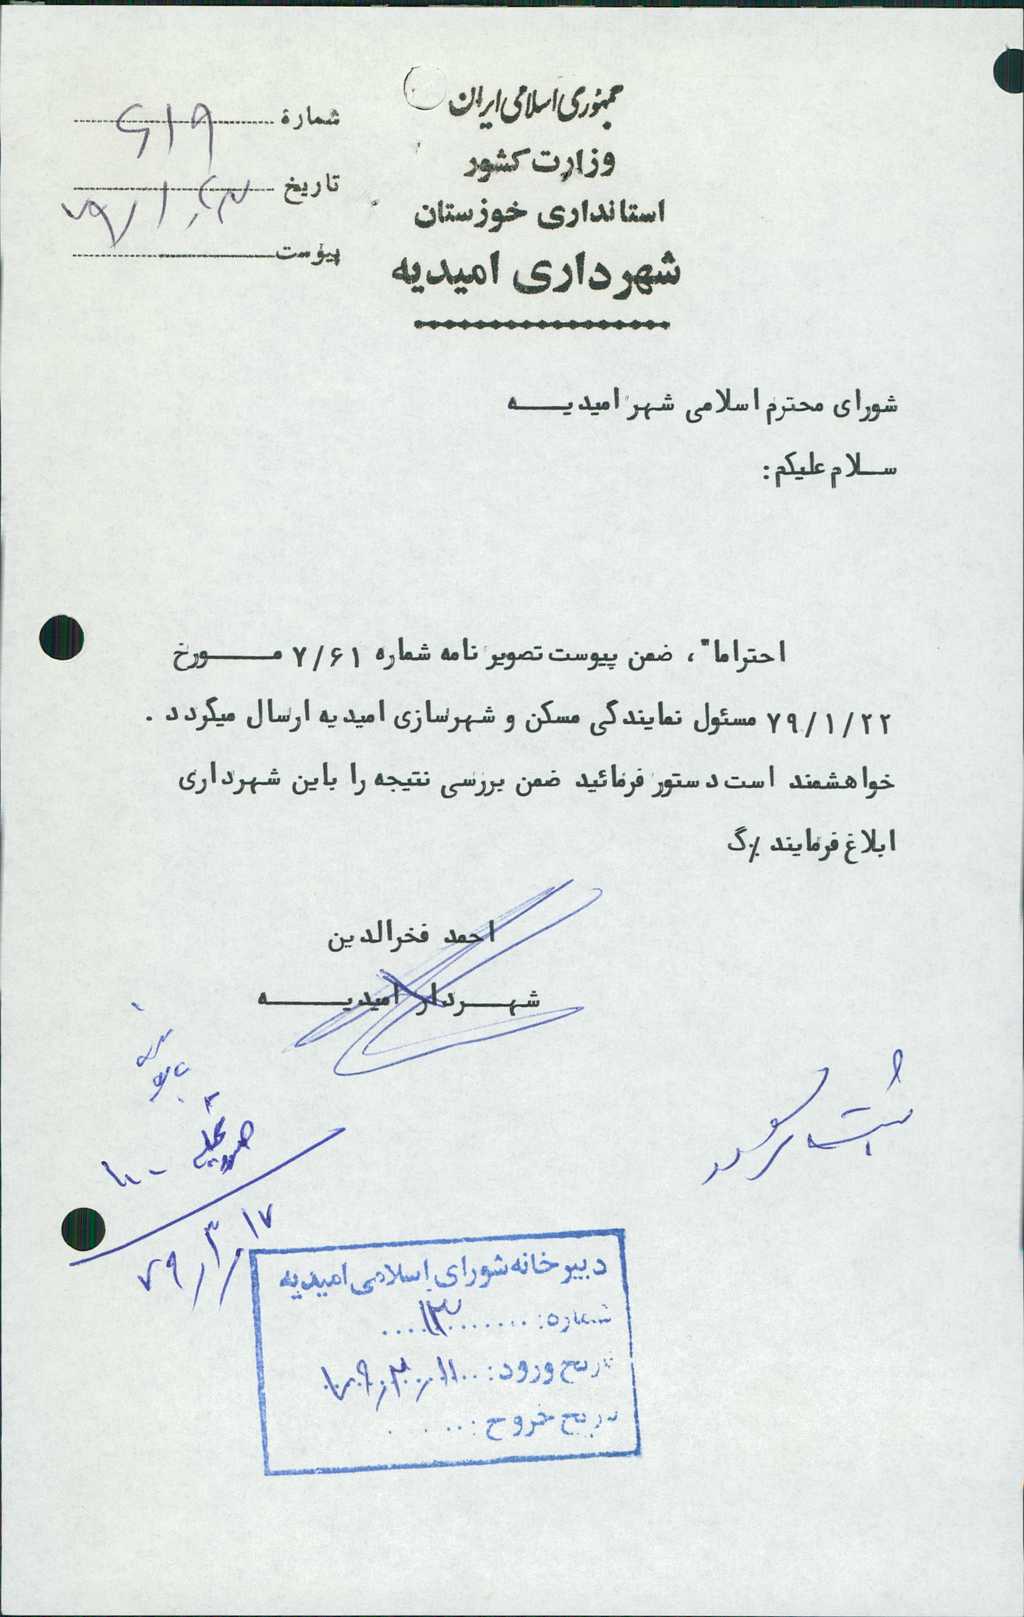 جمهوری اسلامی ایران
وزارت کشور
استانداری خوزستان
شهرداری امیدیه
شماره ۶۱۹
تاریخ
پیوست
شورای محترم اسلامی شهر امیدیــــه
ســلام علیکم:
احتراما"، ضمن پیوست تصویر نامه شماره ۷/۶۱ مـــــورخ
۷۹/۱/۲۲ مسئول نمایندگی مسکن و شهرسازی امیدیه ارسال میگردد .
خواهشمند است دستور فرمائید ضمن بررسی نتیجه را باین شهرداری
ابلاغ فرمایند
احمد فخرالدین
شهــردار امیدیــــه
ثبت گردد
۷۹/۳/۱۷
دبیرخانه شورای اسلامی امیدیه
شماره: ........
تاریخ ورود:
تاریخ خروج: